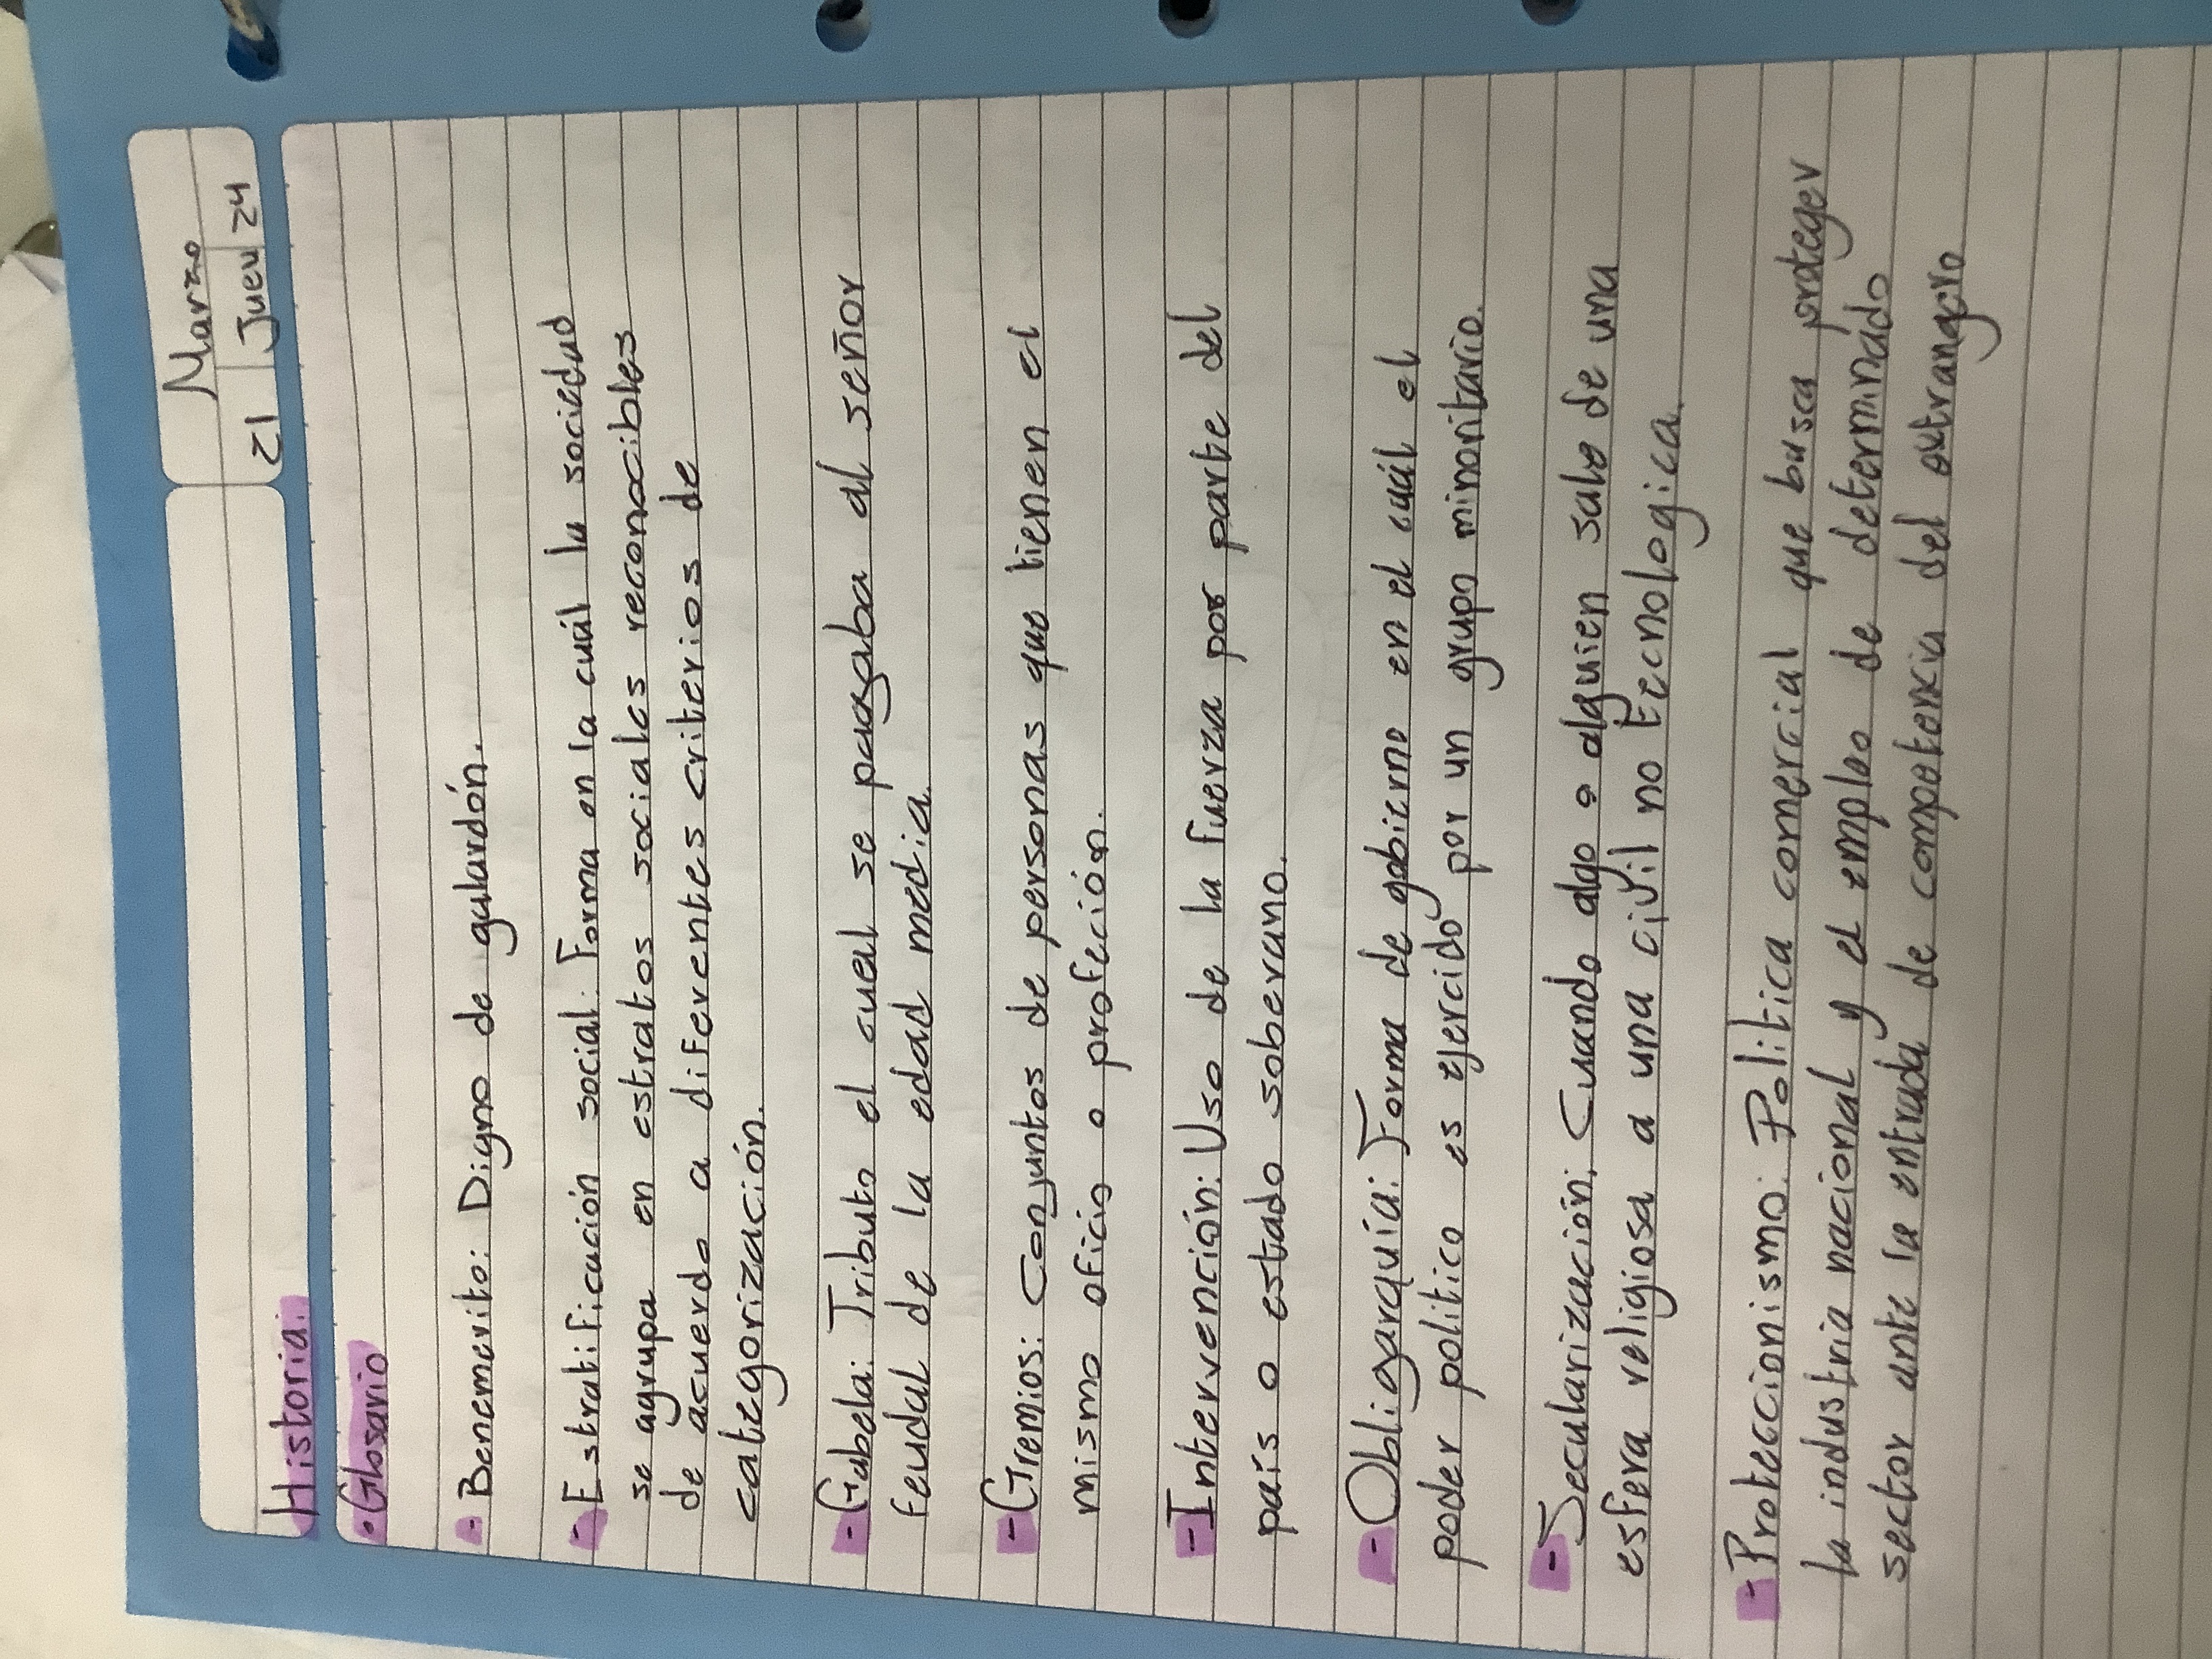 Marzo
21 Juev 24
Historia.
• Glosario
- Benemerito: Digno de galardón.
- Estratificación social: Forma en la cuál la sociedad
se agrupa en estratos sociales reconocibles
de acuerdo a diferentes criterios de
categorización.
- Gabela: Tributo el cual se pagaba al señor
feudal de la edad media.
- Gremios: Conjuntos de personas que tienen el
mismo oficio o profeción.
- Intervención: Uso de la fuerza por parte del
país o estado soberano.
- Obligarquía: Forma de gobierno en el cuál el
poder politico es ejercido por un grupo minoritario.
- Secularización: Cuando algo o alguien sale de una
esfera religiosa a una civil no tecnologica.
- Proteccionismo: Politica comercial que busca proteger
la industria nacional y el empleo de determinado
sector ante la entrada de competencia del extrangro